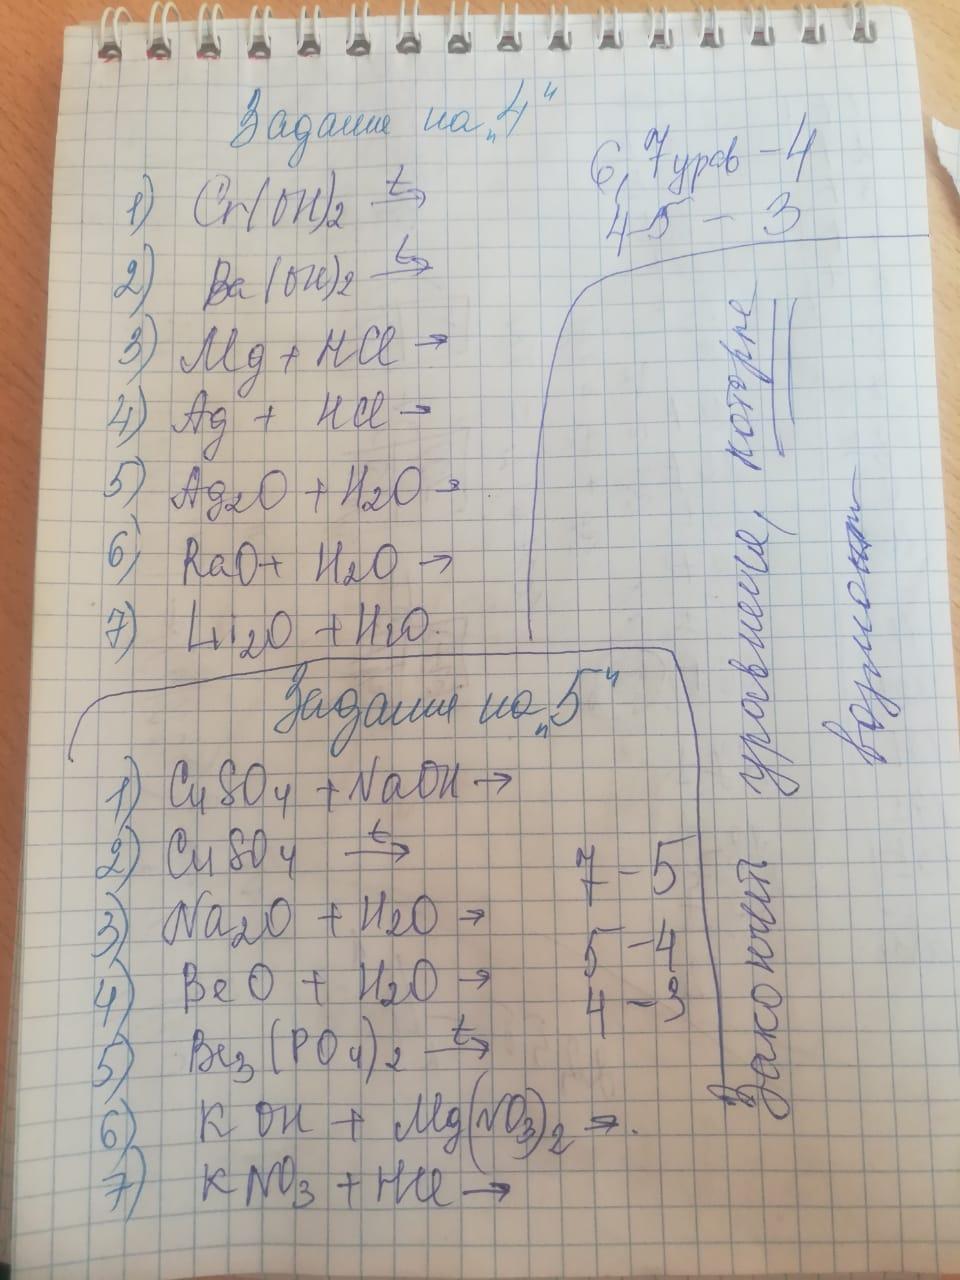 Задание на „4“
6, 7 урав – 4
4-5 – 3
1) Cr(OH)2 t→
2) Ba(OH)2 t→
3) Mg + HCl →
4) Ag + HCl →
5) Ag2O + H2O →
6) RaO + H2O →
7) Li2O + H2O.
Закончит уравнение, которые
возможно
Задание на „5“
1) CuSO4 + NaOH →
2) CuSO4 t→
3) Na2O + H2O →
4) BeO + H2O →
5) Be3(PO4)2 t→
6) KOH + Mg(NO3)2 →.
7) KNO3 + HCl →
7 – 5
5 – 4
4 – 3